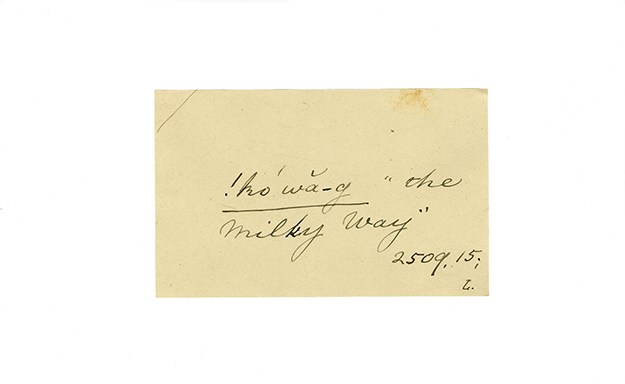 !kó wă-g "the
milky way"
2509, 15;
L.